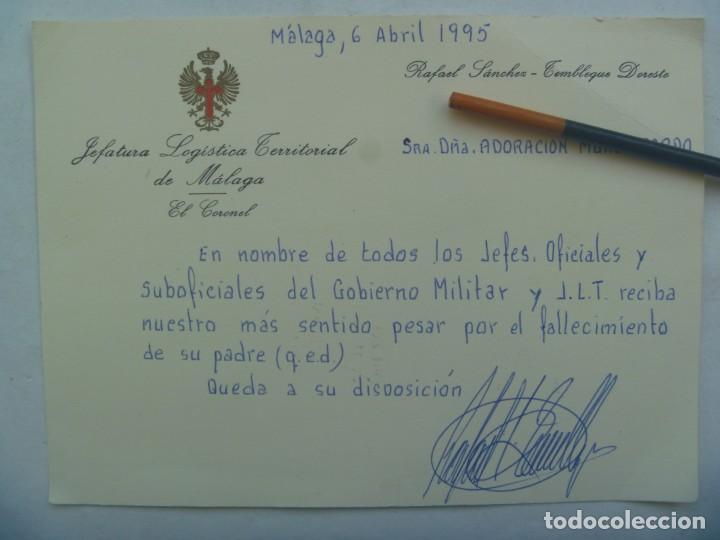 Málaga, 6 Abril 1995
Rafael Sánchez-Tembleque Doreste
Jefatura Logística Territorial
de Málaga
El Coronel
SRA. Dña. ADORACION
En nombre de todos los Jefes, Oficiales y
Suboficiales del Gobierno Militar y J.L.T. reciba
nuestro más sentido pesar por el fallecimiento
de su padre (q.e.d.)
Queda a su disposición
todocoleccion
todocoleccion.net